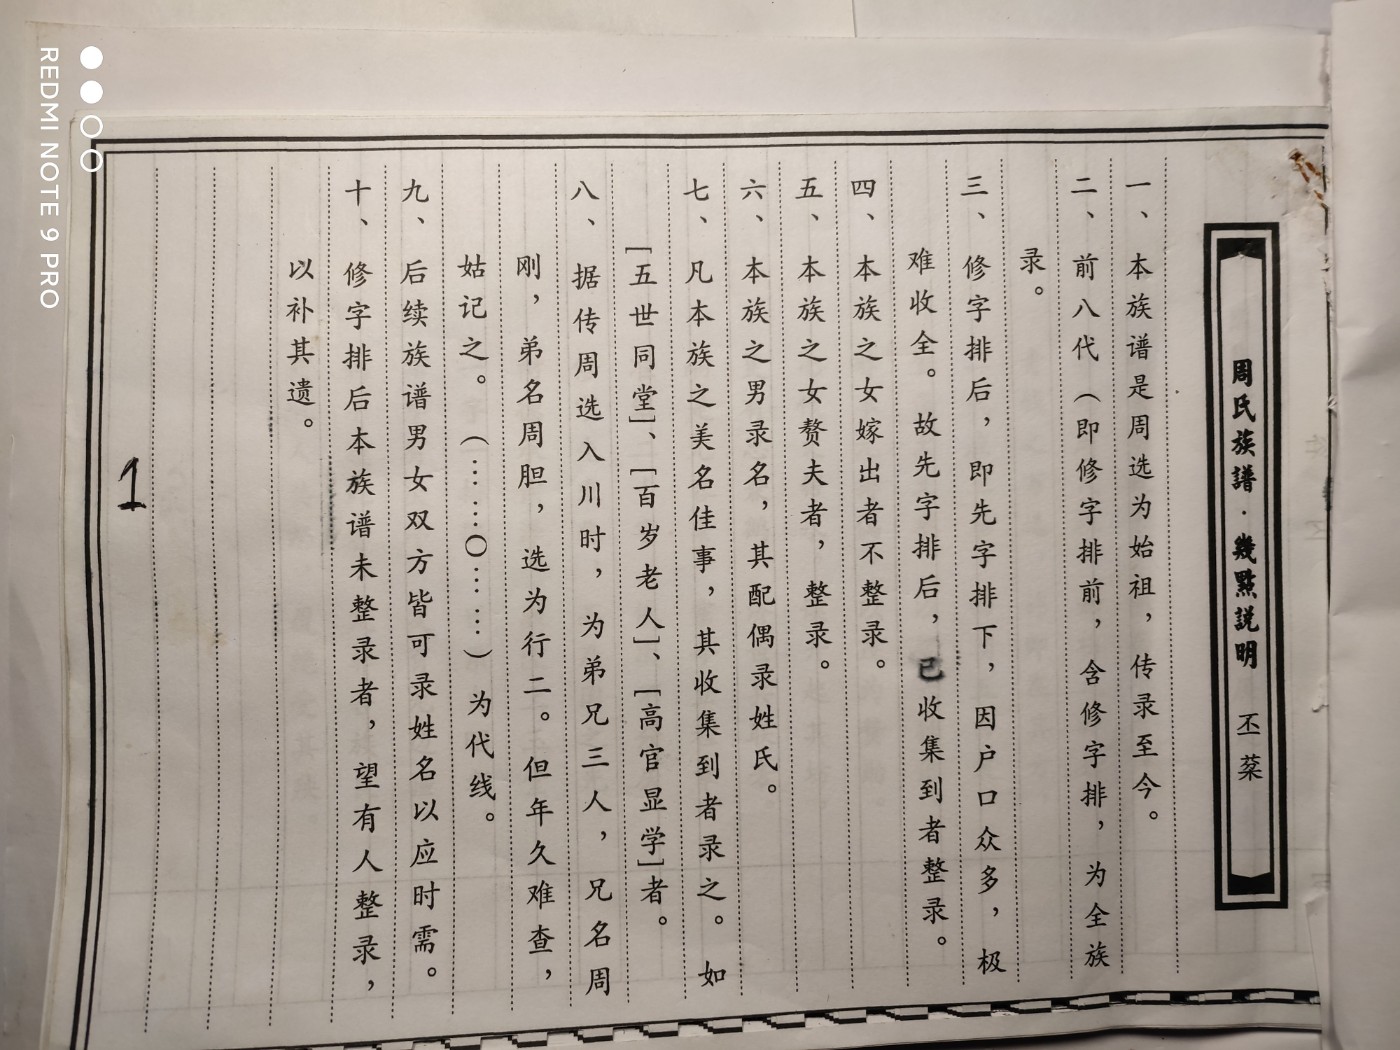 周氏族譜·幾點説明 丕菜
一、本族谱是周选为始祖，传录至今。
二、前八代（即修字排前，含修字排，为全族
录。
三、修字排后，即先字排下，因户口众多，极
难收全。故先字排后，已收集到者整录。
四、本族之女嫁出者不整录。
五、本族之女赘夫者，整录。
六、本族之男录名，其配偶录姓氏。
七、凡本族之美名佳事，其收集到者录之。如
[五世同堂]、[百岁老人]、[高官显学]者。
八、据传周选入川时，为弟兄三人，兄名周
刚，弟名周胆，选为行二。但年久难查，
姑记之。（……〇……）为代线。
九、后续族谱男女双方皆可录姓名以应时需。
十、修字排后本族谱未整录者，望有人整录，
以补其遗。
1
REDMI NOTE 9 PRO